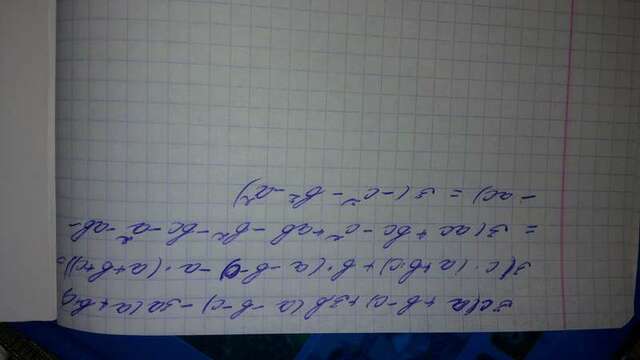 3c(a + b - c) + 3b(a - b - c) - 3a(a + b + c)
3(c · (a + b - c) + b · (a - b - c) - a · (a + b + c)) =
= 3(ac + bc - c² + ab - b² - bc - a² - ab -
- ac) = 3(-c² - b² - a²)